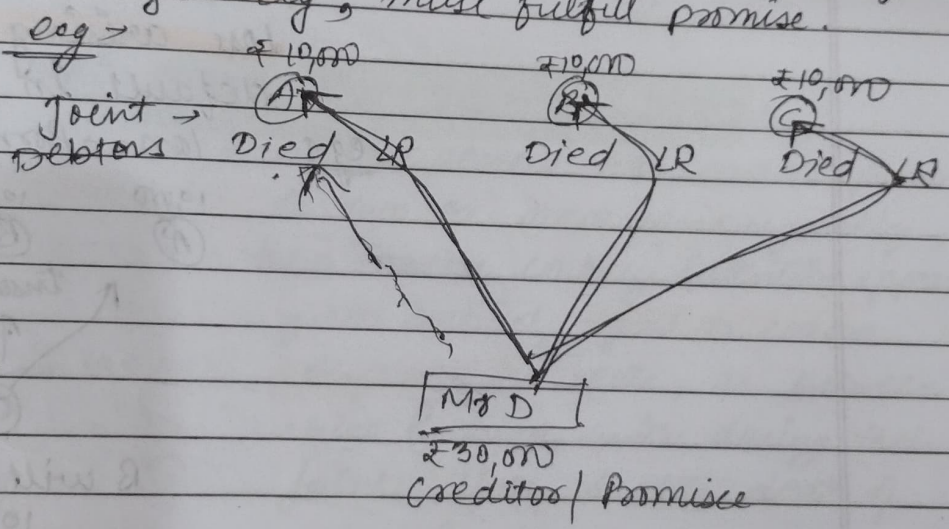 must fulfill promise.
eg →
₹10,000 ₹10,000 ₹10,000
Joint → A B C
Debtors Died LR Died LR Died LR
Mr D
₹30,000
Creditor / Promisee